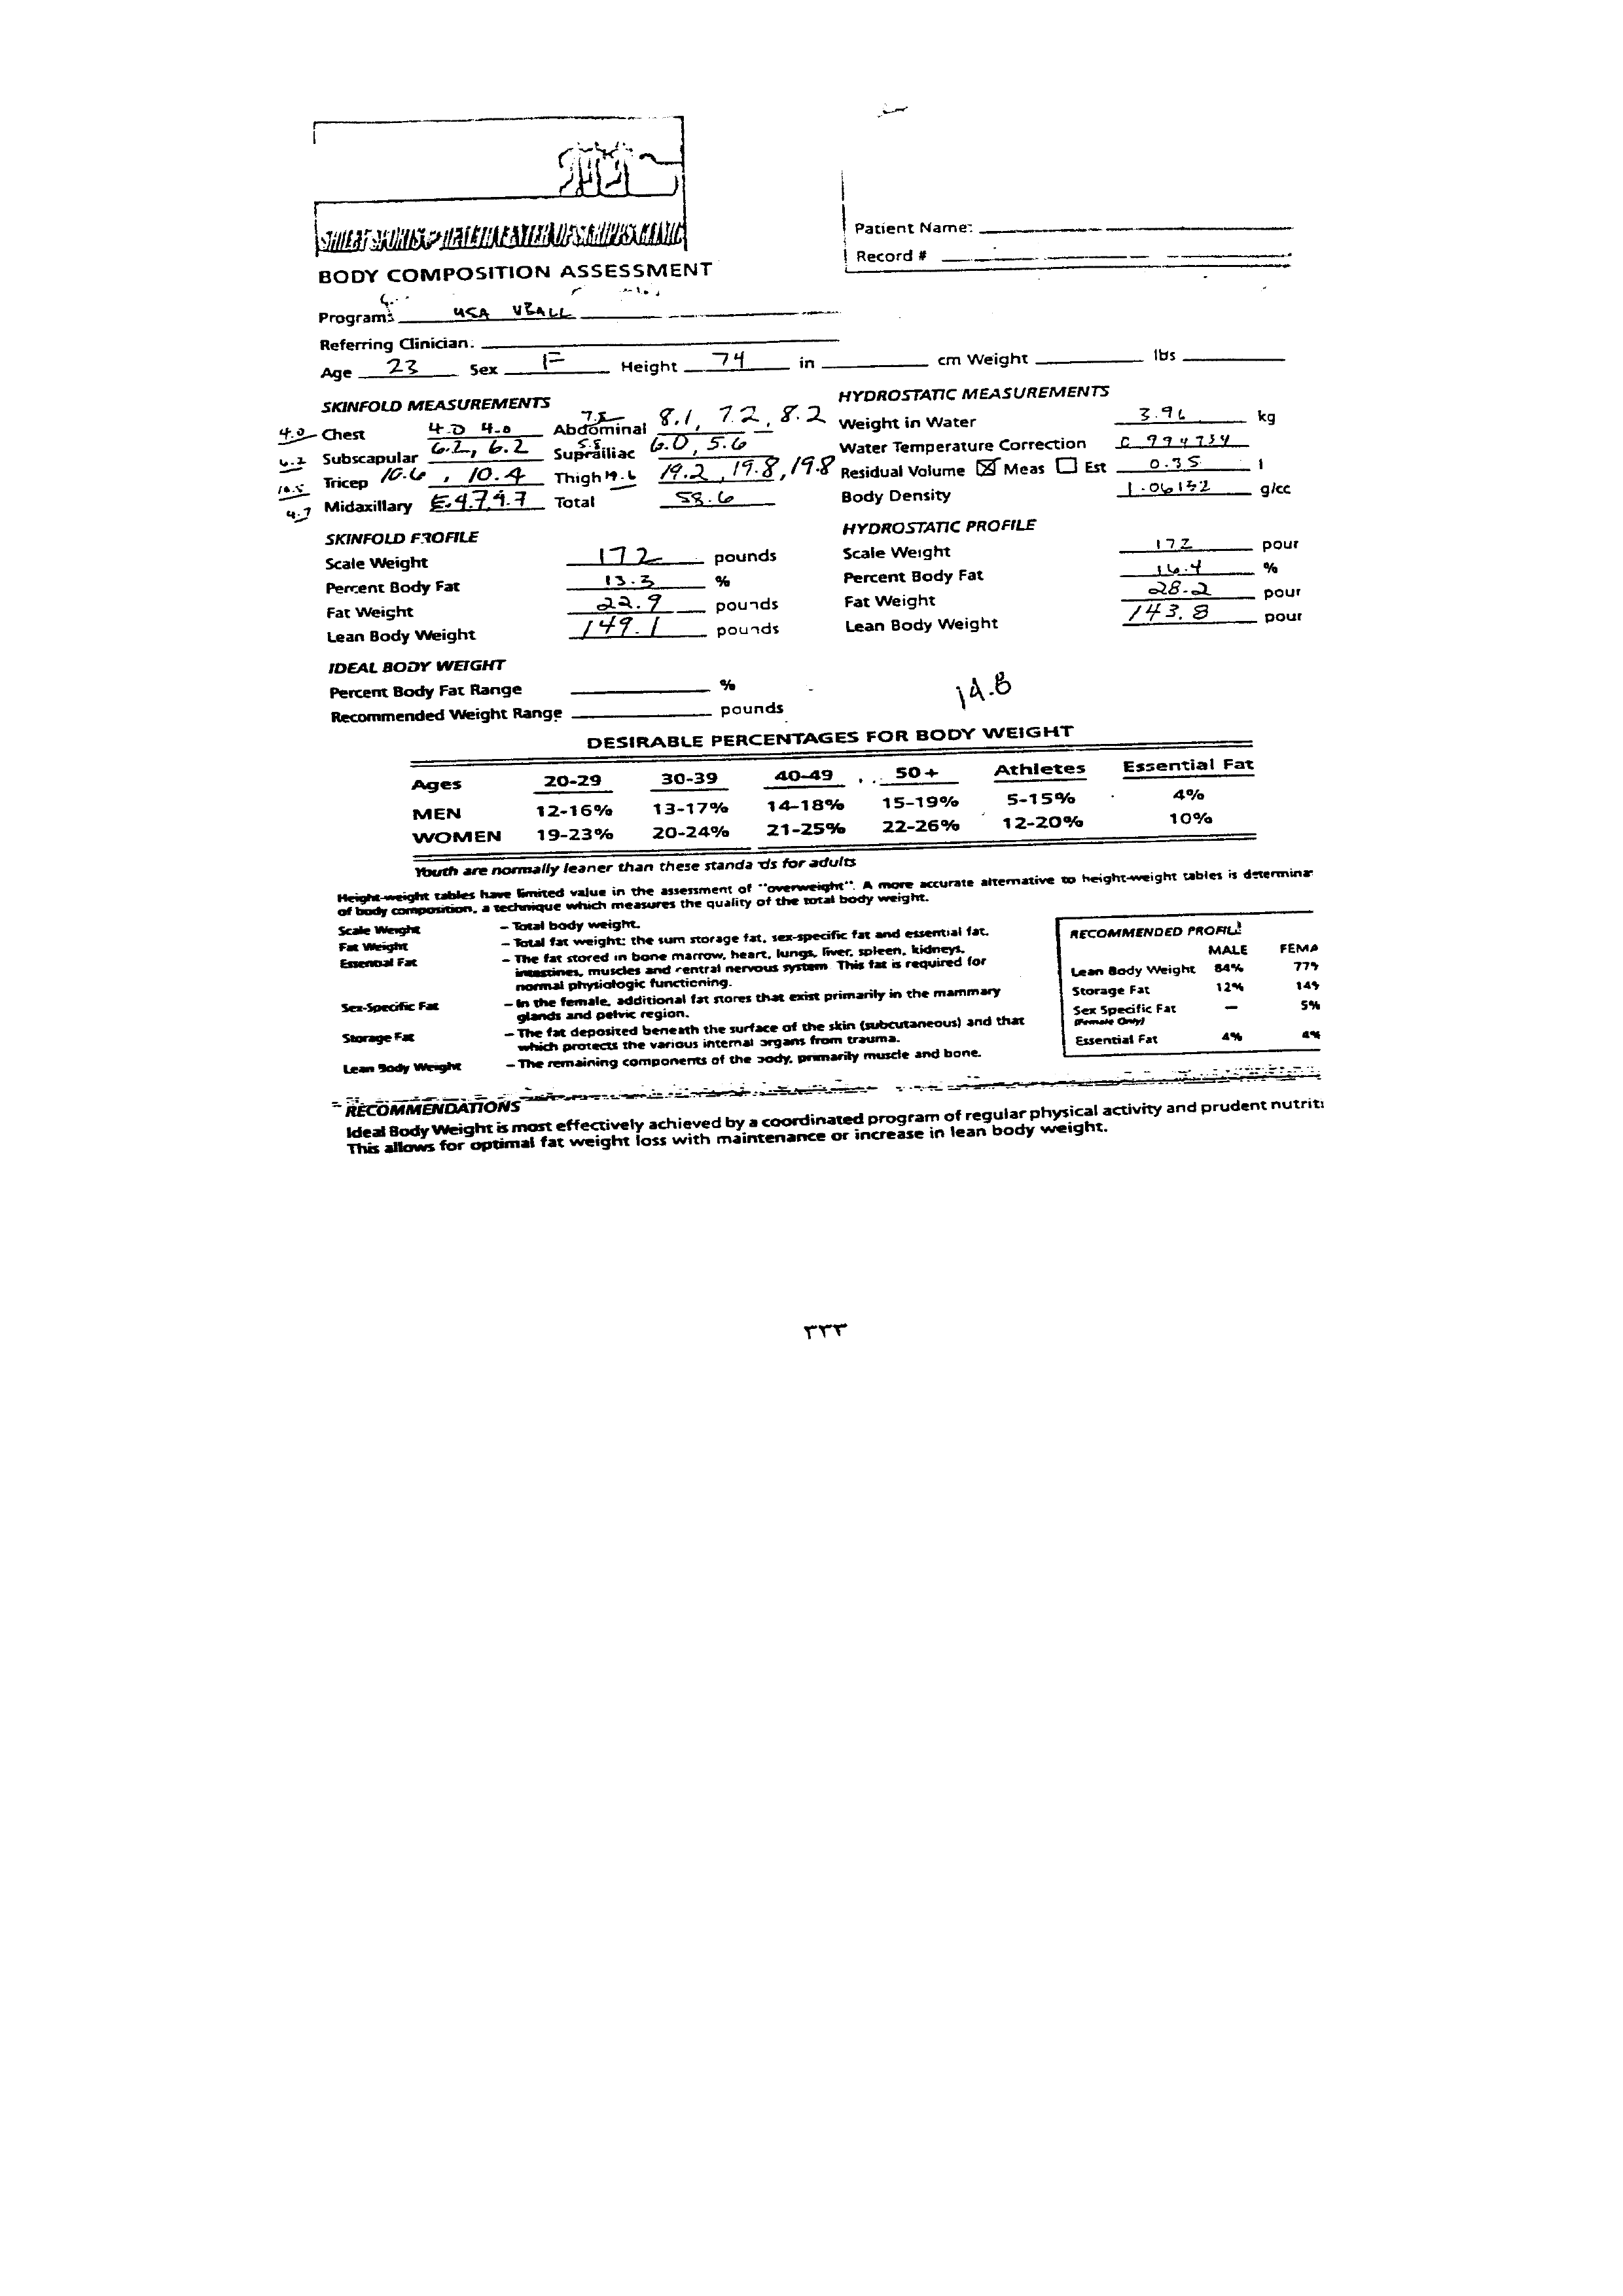 Patient Name:
Record #
BODY COMPOSITION ASSESSMENT
Program: USA VBALL
Referring Clinician:
Age 23 Sex F Height 74 in cm Weight lbs
SKINFOLD MEASUREMENTS
4.0 Chest 4.0 4.0 Abdominal 8.1, 7.2, 8.2
6.2 Subscapular 6.2, 6.2 Suprailiac 6.0, 5.6
10.5 Tricep 10.6, 10.4 Thigh 19.6 19.2, 19.8, 19.8
4.7 Midaxillary 4.7 Total 58.6
HYDROSTATIC MEASUREMENTS
Weight in Water 3.96 kg
Water Temperature Correction 0.994734
Residual Volume ☒ Meas ☐ Est 0.35 l
Body Density 1.06132 g/cc
SKINFOLD PROFILE
Scale Weight 172 pounds
Percent Body Fat 13.3 %
Fat Weight 22.9 pounds
Lean Body Weight 149.1 pounds
HYDROSTATIC PROFILE
Scale Weight 172 pour
Percent Body Fat 16.4 %
Fat Weight 28.2 pour
Lean Body Weight 143.8 pour
IDEAL BODY WEIGHT
Percent Body Fat Range %
Recommended Weight Range pounds
14.8
DESIRABLE PERCENTAGES FOR BODY WEIGHT
Ages 20-29 30-39 40-49 50+ Athletes Essential Fat
MEN 12-16% 13-17% 14-18% 15-19% 5-15% 4%
WOMEN 19-23% 20-24% 21-25% 22-26% 12-20% 10%
Youth are normally leaner than these standards for adults
Height-weight tables have limited value in the assessment of "overweight". A more accurate alternative to height-weight tables is determina
of body composition, a technique which measures the quality of the total body weight.
Scale Weight – Total body weight.
Fat Weight – Total fat weight: the sum storage fat, sex-specific fat and essential fat.
Essential Fat – The fat stored in bone marrow, heart, lungs, liver, spleen, kidneys,
intestines, muscles and central nervous system. This fat is required for
normal physiologic functioning.
Sex-Specific Fat – In the female, additional fat stores that exist primarily in the mammary
glands and pelvic region.
Storage Fat – The fat deposited beneath the surface of the skin (subcutaneous) and that
which protects the various internal organs from trauma.
Lean Body Weight – The remaining components of the body, primarily muscle and bone.
RECOMMENDED PROFILE
MALE FEMA
Lean Body Weight 84% 77%
Storage Fat 12% 14%
Sex Specific Fat — 5%
(Female Only)
Essential Fat 4% 4%
RECOMMENDATIONS
Ideal Body Weight is most effectively achieved by a coordinated program of regular physical activity and prudent nutriti
This allows for optimal fat weight loss with maintenance or increase in lean body weight.
٣٣٣